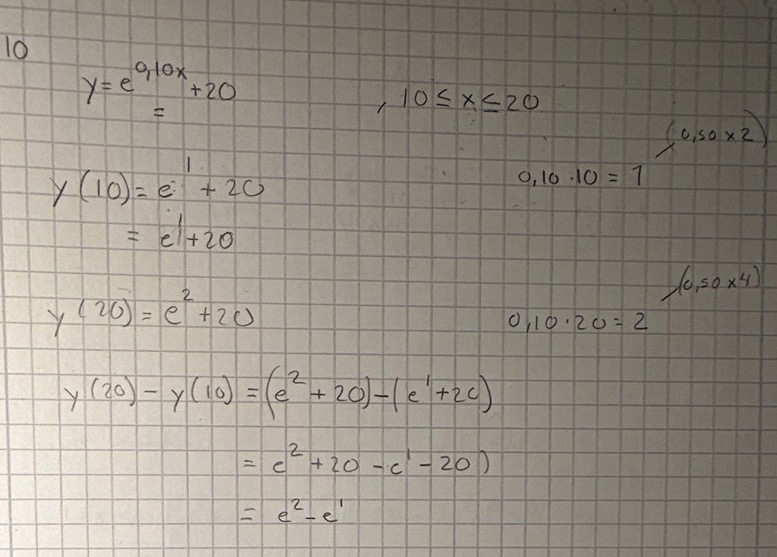 10
y = e^0,10x + 20 , 10 ≤ x ≤ 20
=
(0,50 x 2)
y(10) = e^1 + 20 0,10 · 10 = 1
= e^1 + 20
(0,50 x 4)
y(20) = e^2 + 20 0,10 · 20 = 2
y(20) - y(10) = (e^2 + 20) - (e^1 + 20)
= e^2 + 20 - e^1 - 20)
= e^2 - e^1